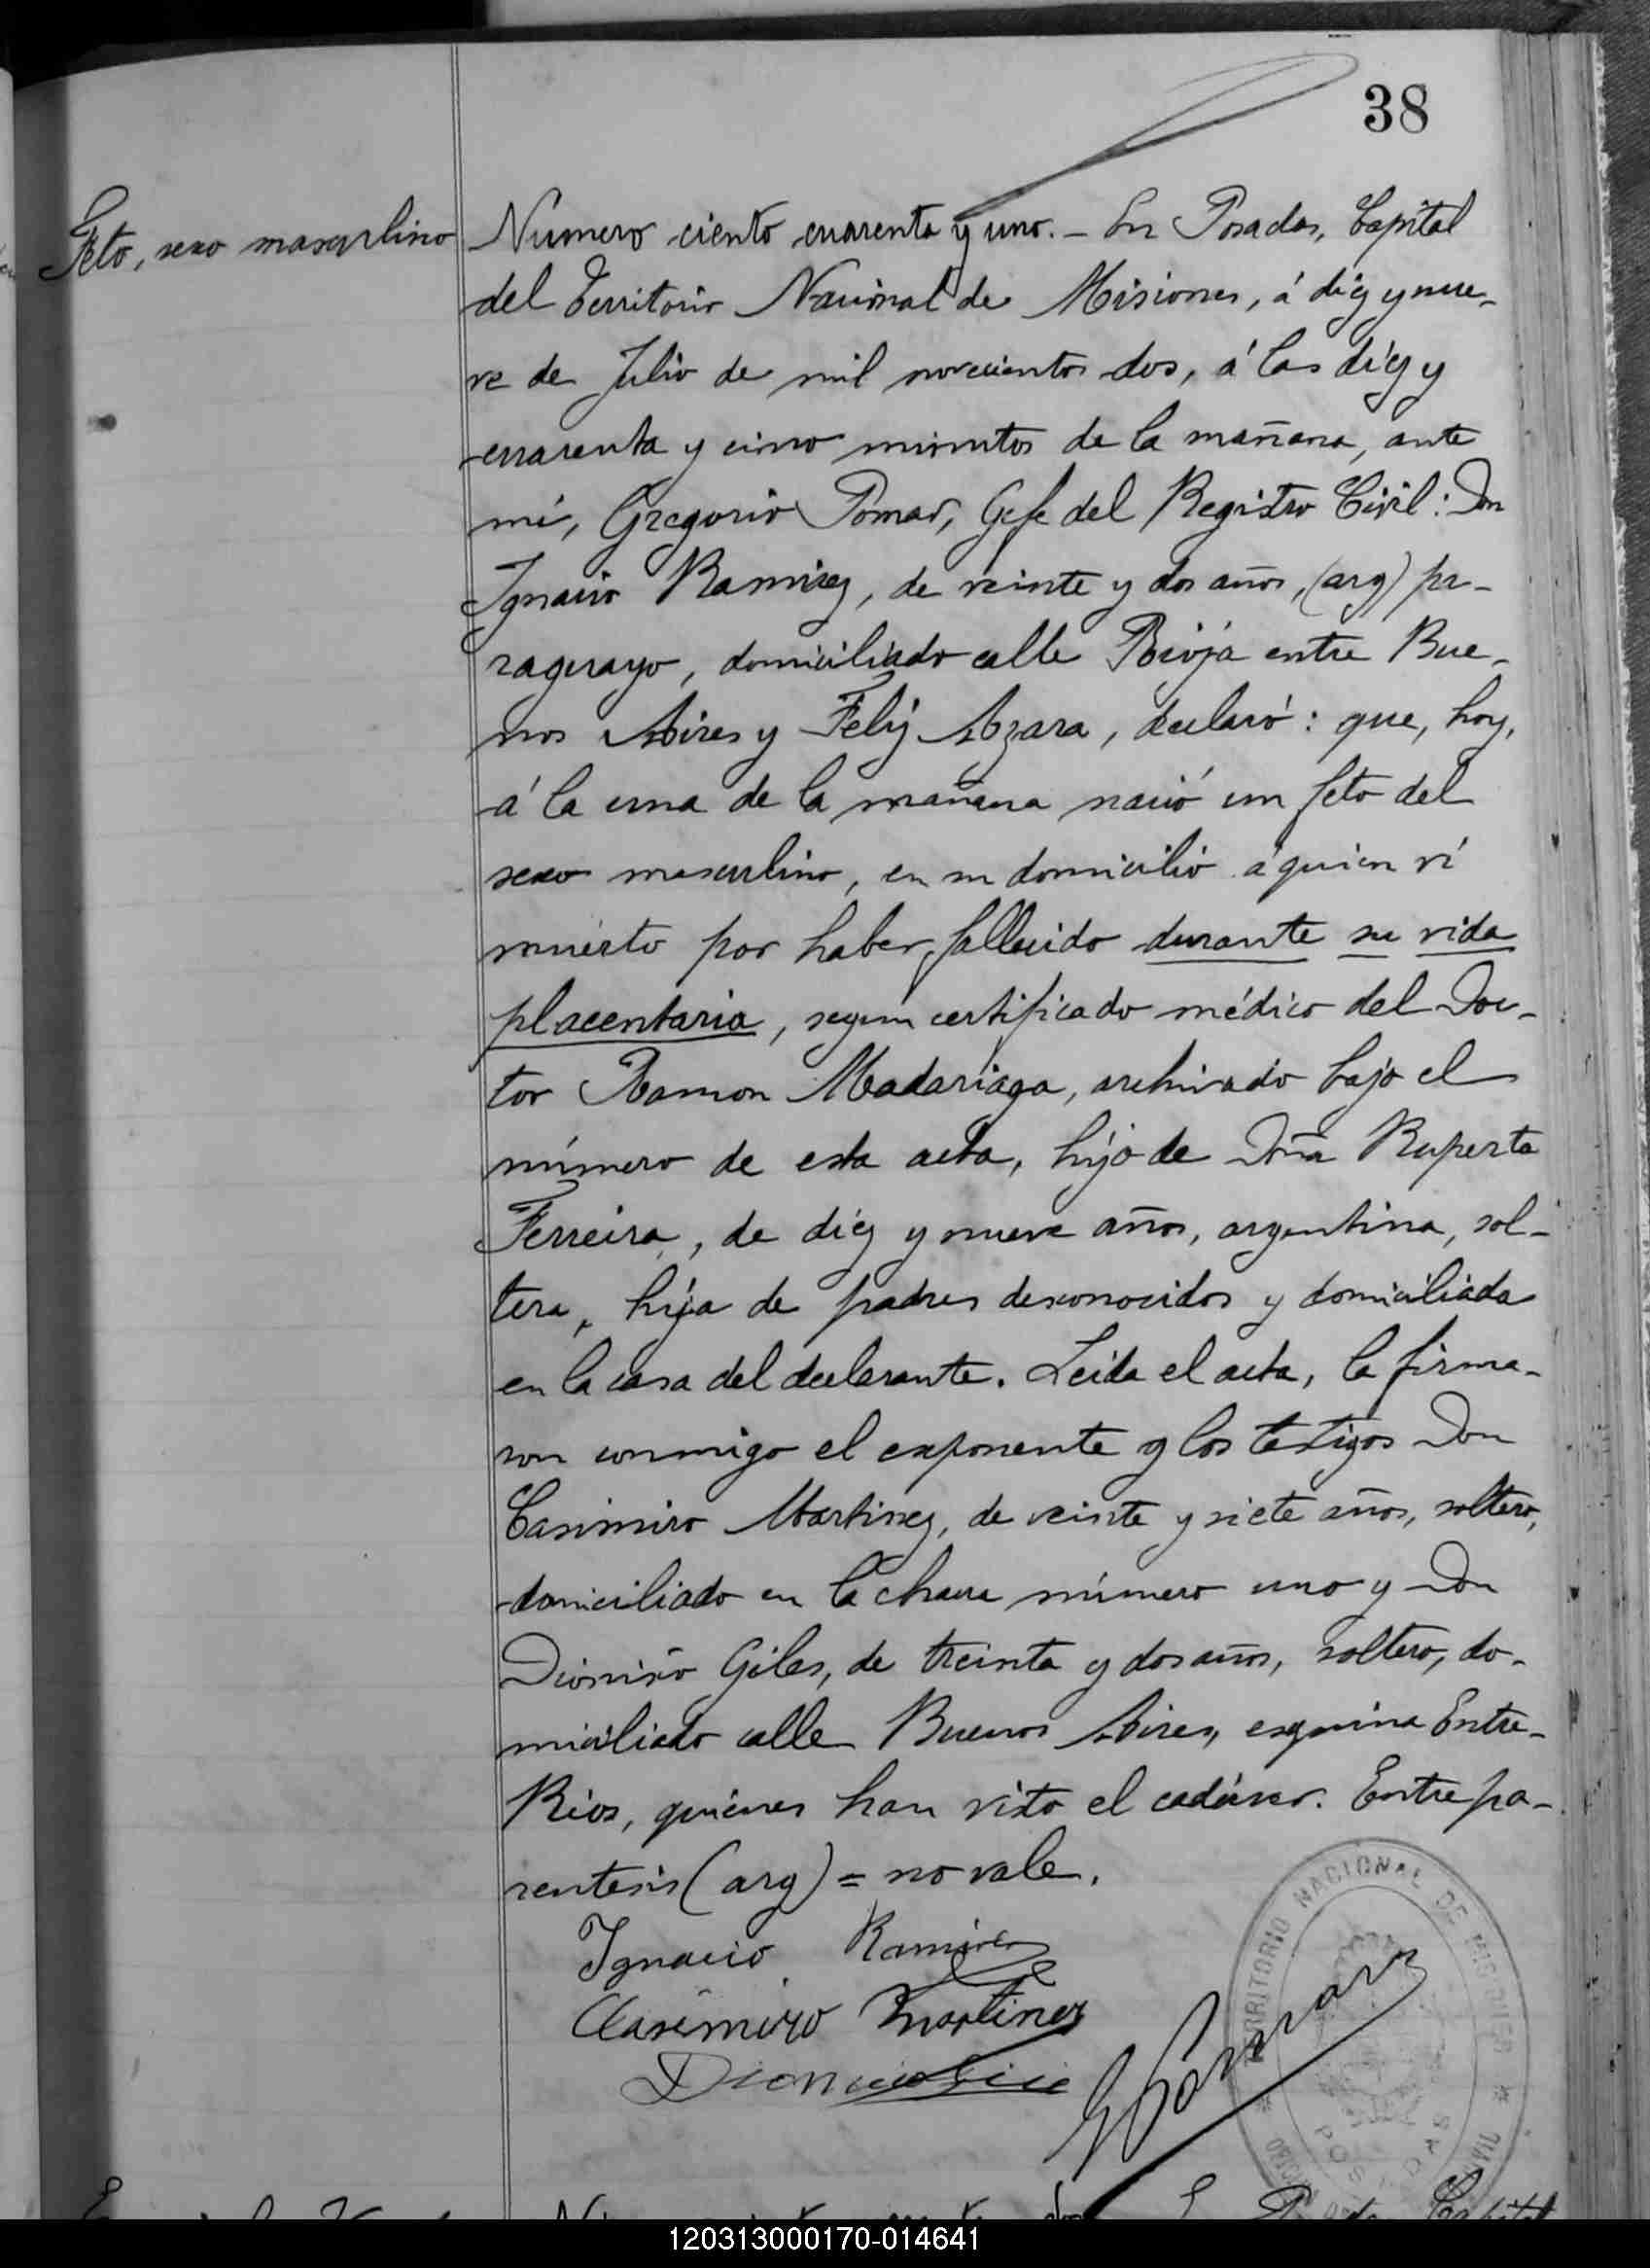 38
Feto, sexo masculino
Numero ciento cuarenta y uno. - En Posadas, Capital
del Territorio Nacional de Misiones, á diez y nue-
ve de Julio de mil novecientos dos, á las diez y
cuarenta y cinco minutos de la mañana, ante
mí, Gregorio Pomar, Gefe del Registro Civil: Don
Ignacio Ramirez, de veinte y dos años, (arg) pa-
raguayo, domiciliado calle Rioja entre Bue-
nos Aires y Feliz Azara, declaró: que, hoy,
á la una de la mañana nació un feto del
sexo masculino, en su domicilio á quien ví
muerto por haber fallecido durante su vida
placentaria, segun certificado médico del Doc-
tor Ramon Madariaga, archivado bajo el
número de esta acta, hijo de Doña Ruperta
Ferreira, de diez y nueve años, argentina, sol-
tera, hija de padres desconocidos y domiciliada
en la casa del declarante. Leida el acta, la firma-
ron conmigo el exponente y los testigos Don
Casimiro Martinez, de veinte y siete años, soltero,
domiciliado en la chacra número uno y Don
Dionisio Giles, de treinta y dos años, soltero, do-
miciliado calle Buenos Aires, esquina Entre-
Rios, quienes han visto el cadáver. Entre pa-
rentesis (arg) = no vale.
Ignacio Ramirez
Casimiro Martinez
Dionicio
G Pomar
TERRITORIO NACIONAL DE MISIONES
POSADAS
120313000170-014641